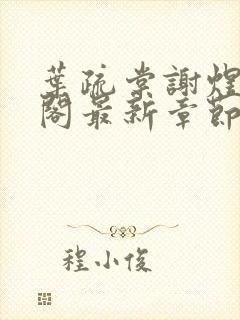 葉疏棠謝煜
閣最新章節
程小俊